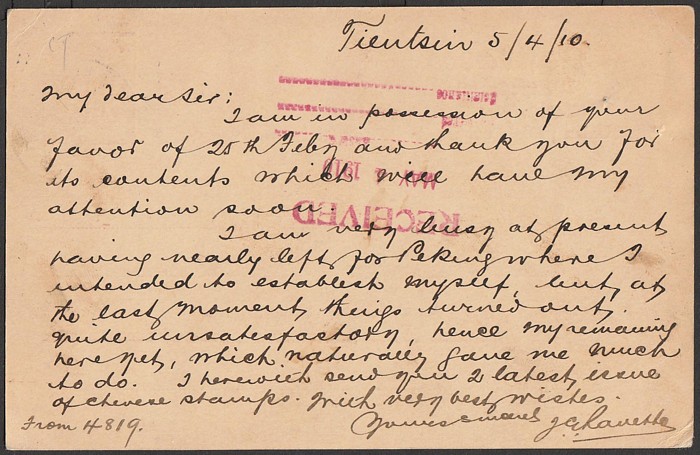 Tientsin 5/4/10.
My dear Sir:
I am in possession of your
favor of 25th Feby and thank you for
its contents which will have my
attention soon.
I am very busy at present
having nearly left for Peking where I
intended to establish myself, but, at
the last moment things turned out
quite unsatesfactory, hence my remaining
here yet, which naturally gave me much
to do. I herewith send you 2 latest issue
of chinese stamps. With very best wishes.
Yours
From 4819.
RECEIVED
MAY 1910